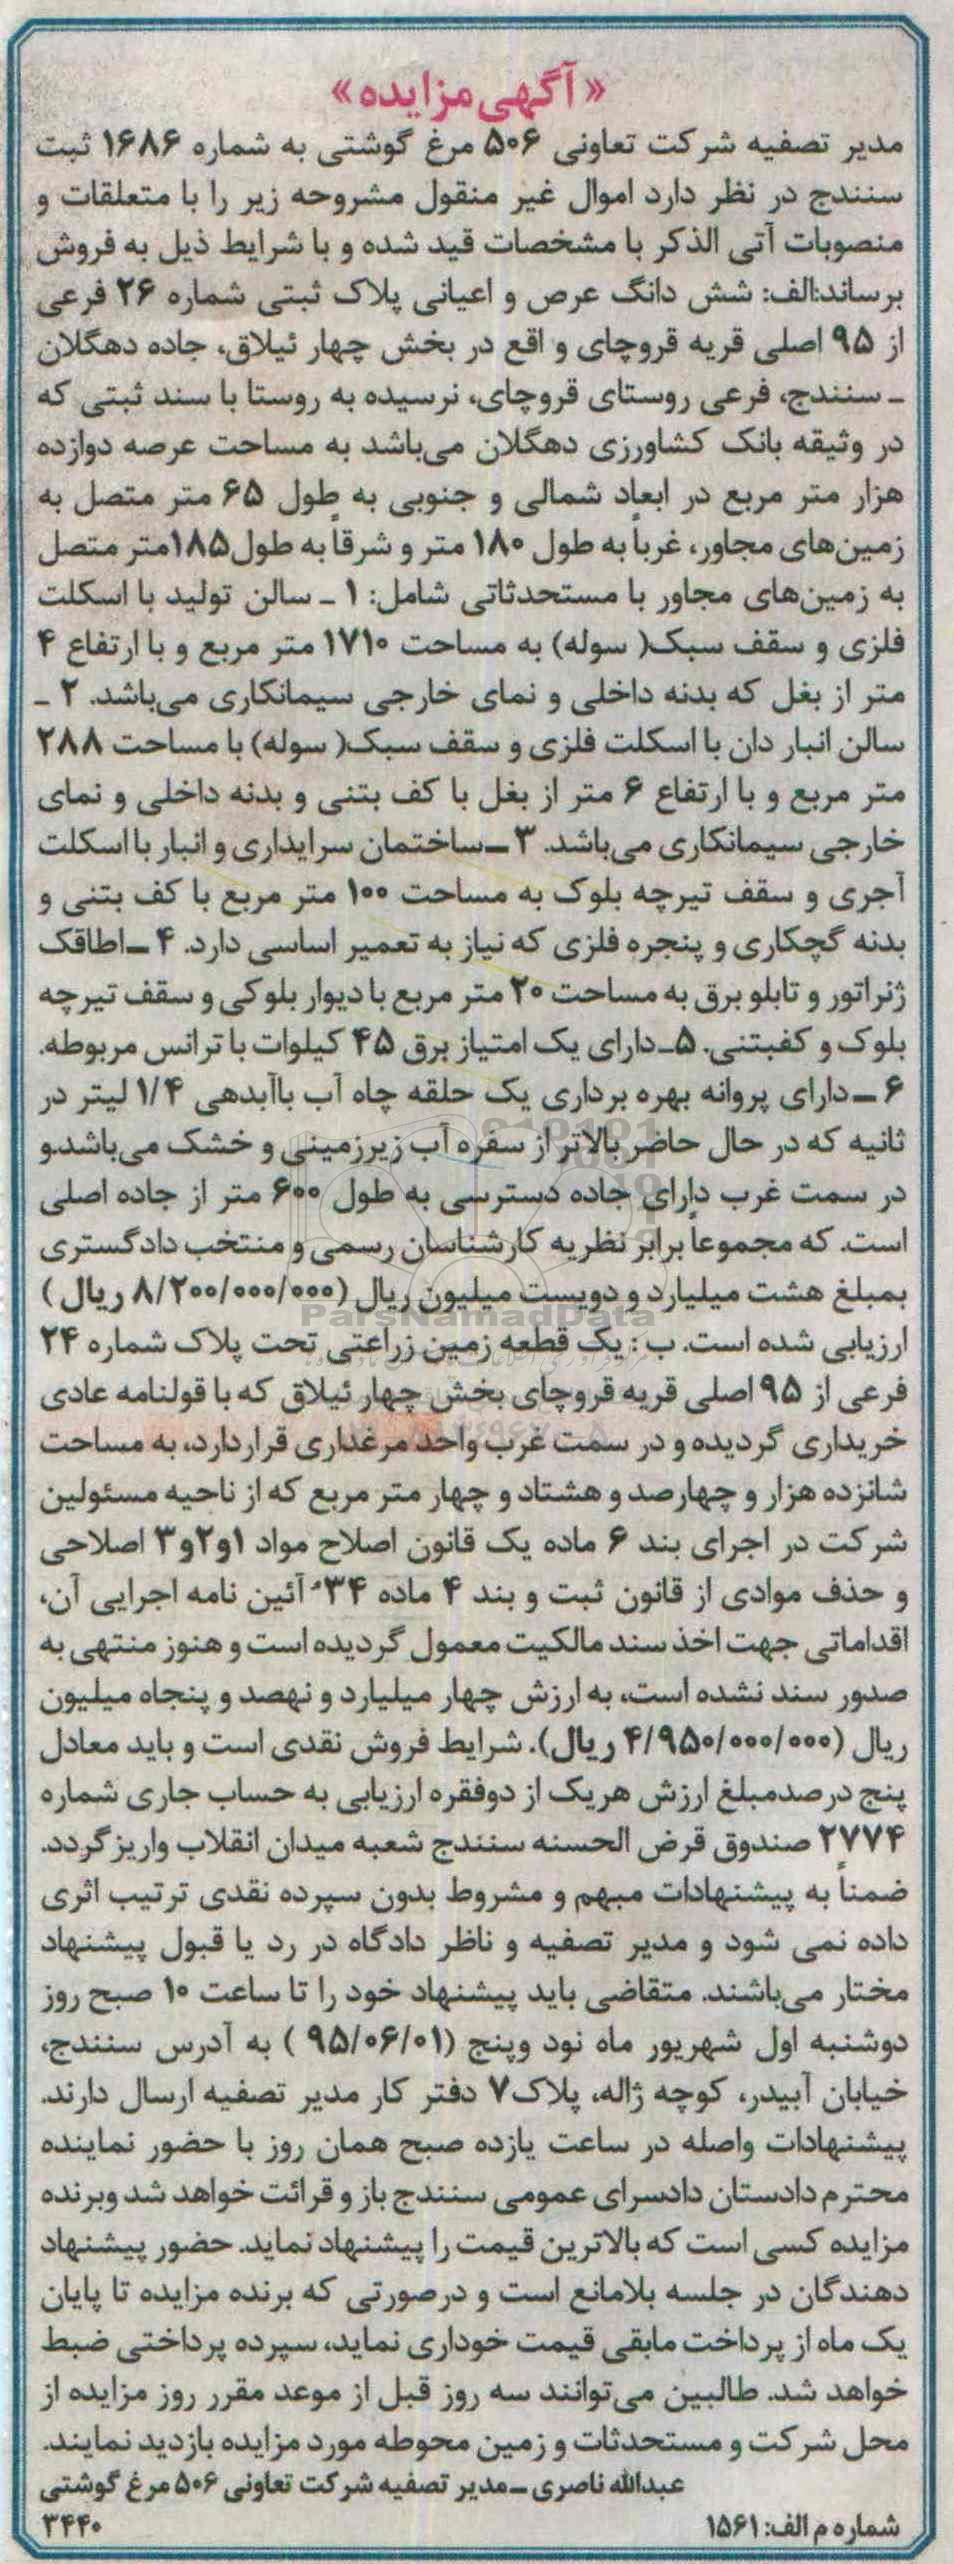 «آگهی مزایده»
مدیر تصفیه شرکت تعاونی ۵۰۶ مرغ گوشتی به شماره ۱۶۸۶ ثبت
سنندج در نظر دارد اموال غیر منقول مشروحه زیر را با متعلقات و
منصوبات آتی الذکر با مشخصات قید شده و با شرایط ذیل به فروش
برساند:الف: شش دانگ عرص و اعیانی پلاک ثبتی شماره ۲۶ فرعی
از ۹۵ اصلی قریه قروچای و اقع در بخش چهار ئیلاق، جاده دهگلان
ـ سنندج، فرعی روستای قروچای، نرسیده به روستا با سند ثبتی که
در وثیقه بانک کشاورزی دهگلان می‌باشد به مساحت عرصه دوازده
هزار متر مربع در ابعاد شمالی و جنوبی به طول ۶۵ متر متصل به
زمین‌های مجاور، غرباً به طول ۱۸۰ متر و شرقاً به طول۱۸۵متر متصل
به زمین‌های مجاور با مستحدثاتی شامل: ۱ ـ سالن تولید با اسکلت
فلزی و سقف سبک( سوله) به مساحت ۱۷۱۰ متر مربع و با ارتفاع ۴
متر از بغل که بدنه داخلی و نمای خارجی سیمانکاری می‌باشد. ۲ ـ
سالن انبار دان با اسکلت فلزی و سقف سبک( سوله) با مساحت ۲۸۸
متر مربع و با ارتفاع ۶ متر از بغل با کف بتنی و بدنه داخلی و نمای
خارجی سیمانکاری می‌باشد. ۳ ـساختمان سرایداری و انبار با اسکلت
آجری و سقف تیرچه بلوک به مساحت ۱۰۰ متر مربع با کف بتنی و
بدنه گچکاری و پنجره فلزی که نیاز به تعمیر اساسی دارد. ۴ ـاطاقک
ژنراتور و تابلو برق به مساحت ۲۰ متر مربع با دیوار بلوکی و سقف تیرچه
بلوک و کفبتنی. ۵ـدارای یک امتیاز برق ۴۵ کیلوات با ترانس مربوطه.
۶ ـدارای پروانه بهره برداری یک حلقه چاه آب باآبدهی ۱/۴ لیتر در
ثانیه که در حال حاضر بالاتر از سفره آب زیرزمینی و خشک می‌باشد.و
در سمت غرب دارای جاده دسترسی به طول ۶۰۰ متر از جاده اصلی
است. که مجموعاً برابر نظریه کارشناسان رسمی و منتخب دادگستری
بمبلغ هشت میلیارد و دویست میلیون ریال (۸/۲۰۰/۰۰۰/۰۰۰ ریال )
ParsNamadData
ارزیابی شده است. ب : یک قطعه زمین زراعتی تحت پلاک شماره ۲۴
فرعی از ۹۵ اصلی قریه قروچای بخش چهار ئیلاق که با قولنامه عادی
خریداری گردیده و در سمت غرب واحد مرغداری قراردارد، به مساحت
شانزده هزار و چهارصد و هشتاد و چهار متر مربع که از ناحیه مسئولین
شرکت در اجرای بند ۶ ماده یک قانون اصلاح مواد ۱و۲و۳ اصلاحی
و حذف موادی از قانون ثبت و بند ۴ ماده ۳۴ آئین نامه اجرایی آن،
اقداماتی جهت اخذ سند مالکیت معمول گردیده است و هنوز منتهی به
صدور سند نشده است، به ارزش چهار میلیارد و نهصد و پنجاه میلیون
ریال (۴/۹۵۰/۰۰۰/۰۰۰ ریال). شرایط فروش نقدی است و باید معادل
پنج درصدمبلغ ارزش هریک از دوفقره ارزیابی به حساب جاری شماره
۲۷۷۴ صندوق قرض الحسنه سنندج شعبه میدان انقلاب واریز گردد.
ضمناً به پیشنهادات مبهم و مشروط بدون سپرده نقدی ترتیب اثری
داده نمی شود و مدیر تصفیه و ناظر دادگاه در رد یا قبول پیشنهاد
مختار می‌باشند. متقاضی باید پیشنهاد خود را تا ساعت ۱۰ صبح روز
دوشنبه اول شهریور ماه نود وپنج (۹۵/۰۶/۰۱ ) به آدرس سنندج،
خیابان آبیدر، کوچه ژاله، پلاک۷ دفتر کار مدیر تصفیه ارسال دارند.
پیشنهادات واصله در ساعت یازده صبح همان روز با حضور نماینده
محترم دادستان دادسرای عمومی سنندج باز و قرائت خواهد شد وبرنده
مزایده کسی است که بالاترین قیمت را پیشنهاد نماید. حضور پیشنهاد
دهندگان در جلسه بلامانع است و درصورتی که برنده مزایده تا پایان
یک ماه از پرداخت مابقی قیمت خوداری نماید، سپرده پرداختی ضبط
خواهد شد. طالبین می‌توانند سه روز قبل از موعد مقرر روز مزایده از
محل شرکت و مستحدثات و زمین محوطه مورد مزایده بازدید نمایند.
عبدالله ناصری ـمدیر تصفیه شرکت تعاونی ۵۰۶ مرغ گوشتی
شماره م الف: ۱۵۶۱ ۳۴۴۰